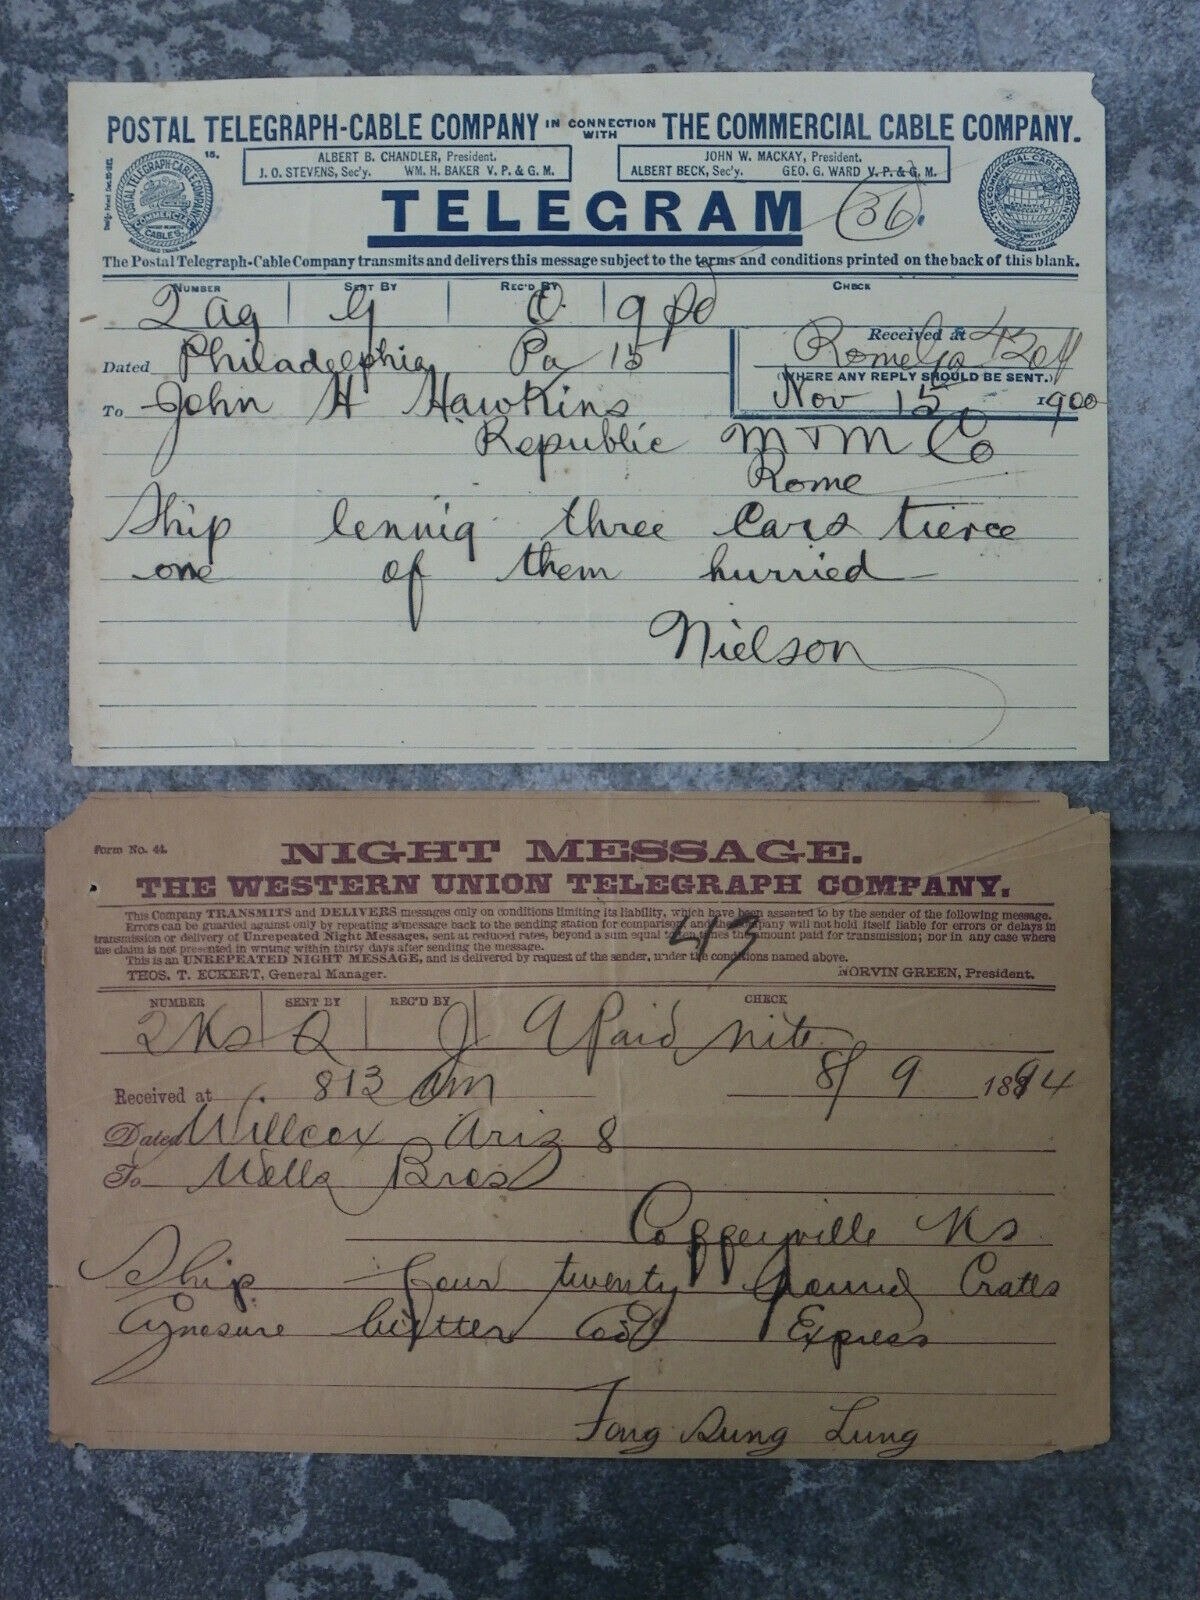 POSTAL TELEGRAPH-CABLE COMPANY IN CONNECTION WITH THE COMMERCIAL CABLE COMPANY.
15.
ALBERT B. CHANDLER, President.
J. O. STEVENS, Sec'y. WM. H. BAKER V. P. & G. M.
JOHN W. MACKAY, President.
ALBERT BECK, Sec'y. GEO. G. WARD V. P. & G. M.
POSTAL TELEGRAPH-CABLE COMPANY
COMMERCIAL CABLES
REGISTERED TRADE MARK.
THE COMMERCIAL CABLE COMPANY
TELEGRAM 36
The Postal Telegraph-Cable Company transmits and delivers this message subject to the terms and conditions printed on the back of this blank.
NUMBER SENT BY REC'D BY CHECK
2 ag G O. 9 pd
Received at
Rome Ga
Dated Philadelphia Pa 15
(WHERE ANY REPLY SHOULD BE SENT.)
To John H Hawkins
Nov 15 1900
Republic M + M Co
Rome
Ship three Cars tierce
one of them hurried
Nielson
Form No. 44.
NIGHT MESSAGE.
THE WESTERN UNION TELEGRAPH COMPANY.
This Company TRANSMITS and DELIVERS messages only on conditions limiting its liability, which have been assented to by the sender of the following message.
Errors can be guarded against only by repeating a message back to the sending station for comparison, and the company will not hold itself liable for errors or delays in
transmission or delivery of Unrepeated Night Messages, sent at reduced rates, beyond a sum equal to ten times the amount paid for transmission; nor in any case where
the claim is not presented in writing within thirty days after sending the message.
This is an UNREPEATED NIGHT MESSAGE, and is delivered by request of the sender, under the conditions named above.
413
THOS. T. ECKERT, General Manager. NORVIN GREEN, President.
NUMBER SENT BY REC'D BY CHECK
2 Ks Q J 9 Paid nite
Received at 813 am 8/9 1894
Dated Willcox Ariz 8
To Wells Bros
Coffeyville Ks
Ship four twenty pound Crates
Cynosure butter Cod Express
Fong Sung Lung